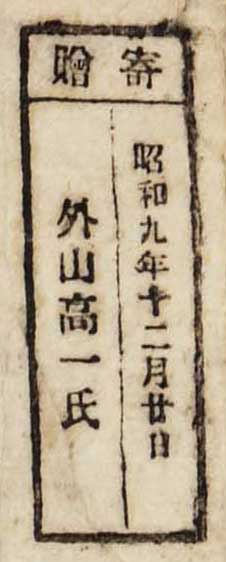 寄贈
昭和九年十二月廿日
外山高一氏